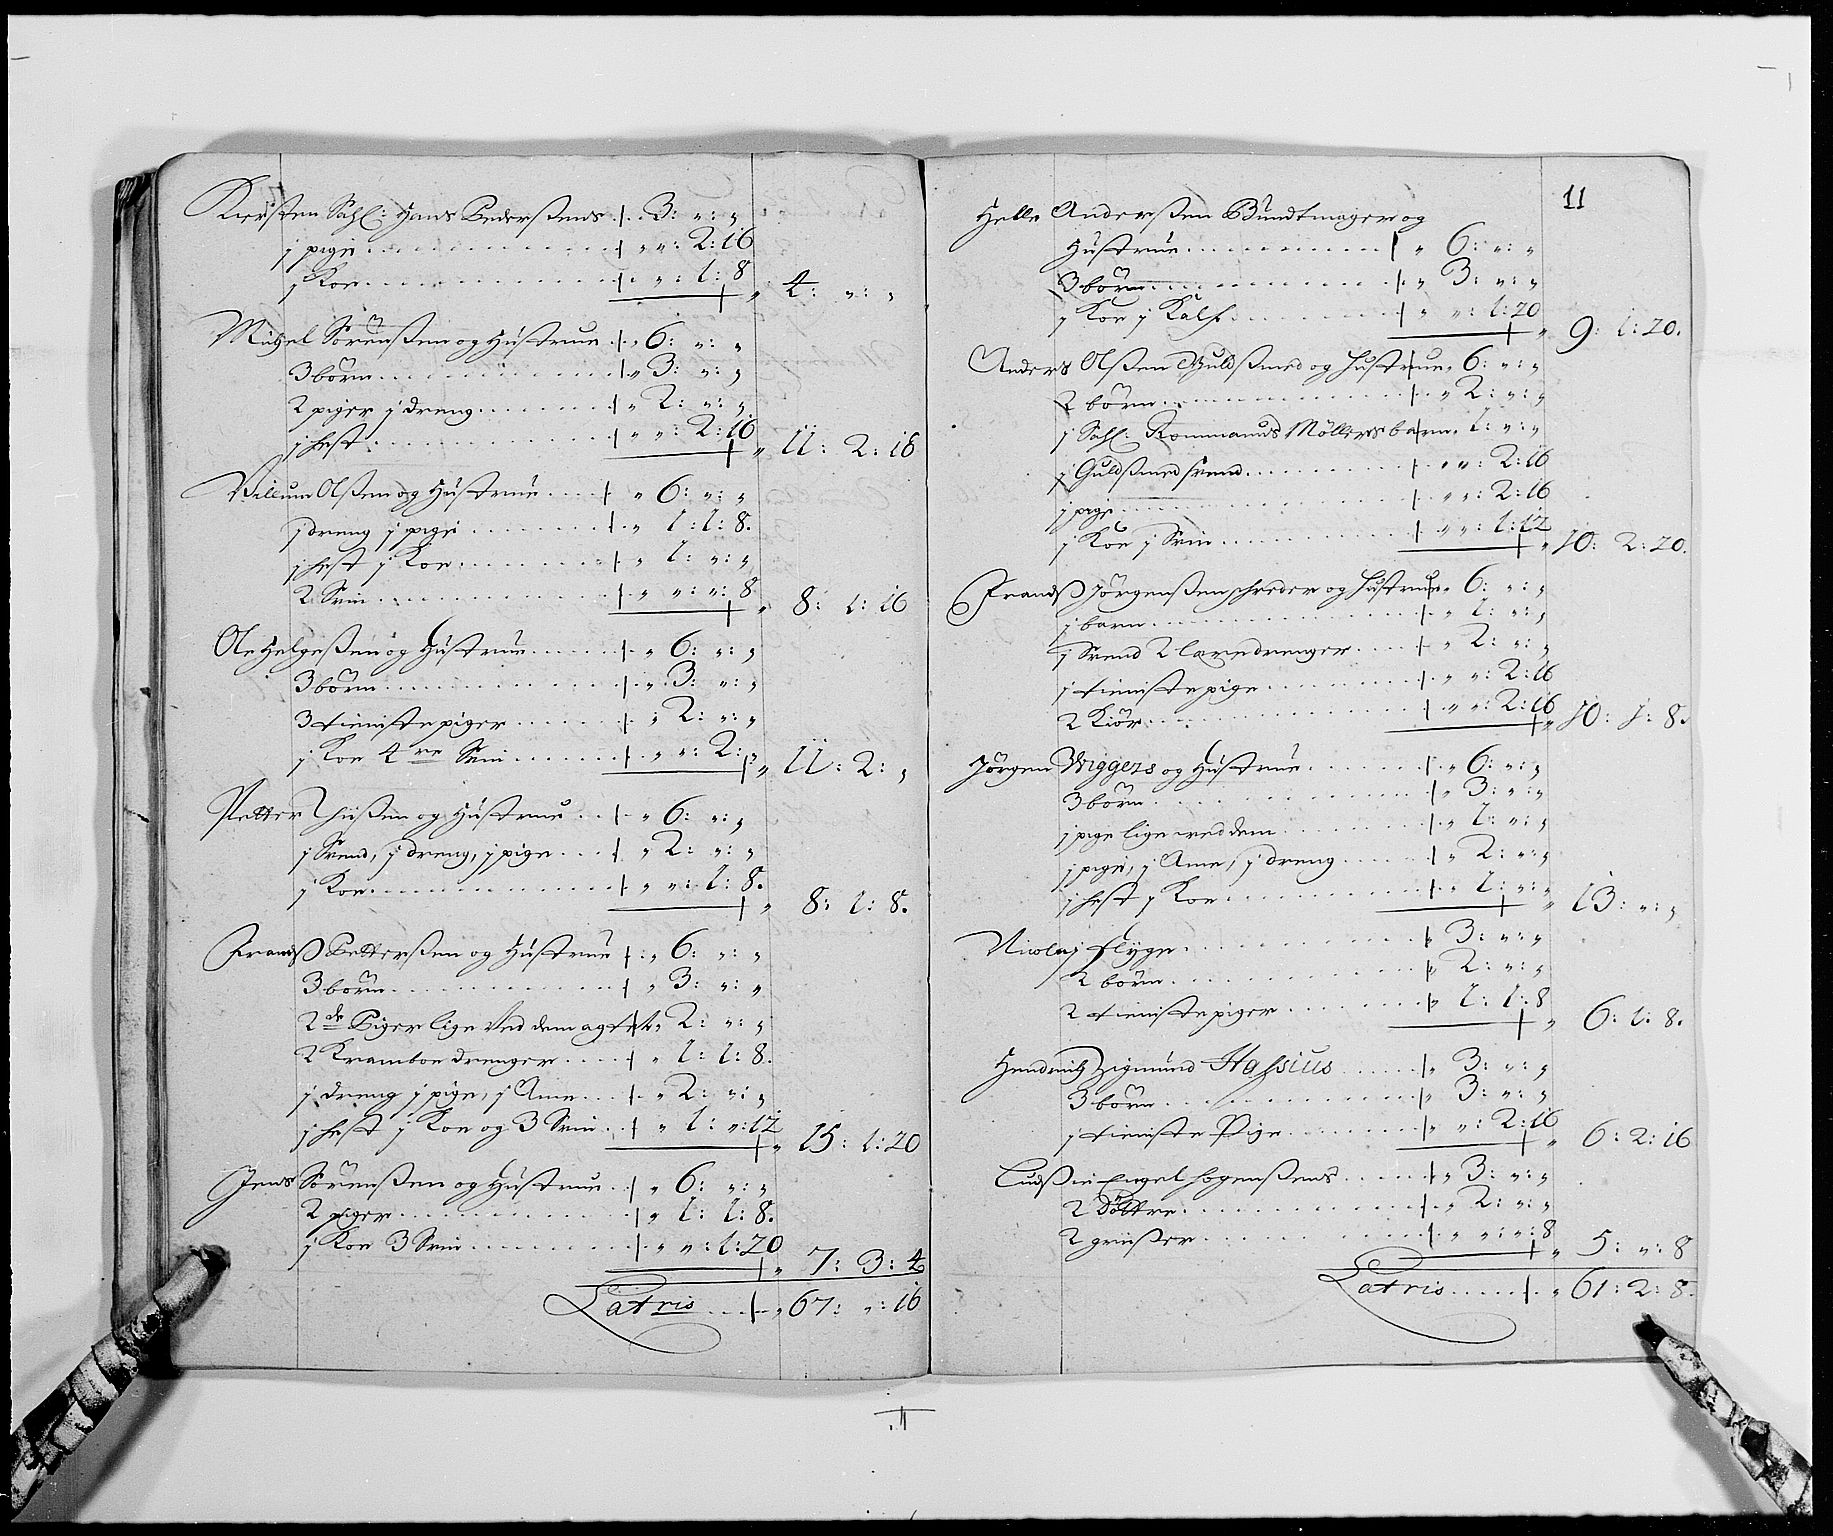 Kirsten Sahl: Hans Pederßens . . 3: „: „
j pige . . . . „ „: 2: 16
j Koe . . . . „: 1: 8 „ 4: „: „
Michel Sörenßen og Hustrue . . „ 6: „: „
3 börn . . . . „ 3: „: „
2 piger j dreng . . . . „ 2: „: „
j hest . . . . „ „: 2: 16 „ 11: 2: 16
Villum Olßen og Hustrue . . . „ 6: „: „
j dreng j pige . . . . „ 1: 1: 8.
j hest j Koe . . . . „ 1: „: „
2 Svin . . . . „ „: „: 8 „ 8: 1: 16
Ole Helgeßen og Hustrue . . . „ 6: „: „
3 börn . . . . „ 3: „: „
3 tieniste piger . . . . „ 2: „: „
j Koe 4re Svin . . . . „ „: 2: „ „ 11: 2: „
Petter Thißen og Hustrue . . . „ 6: „: „
j Svend, j dreng, j pige . . . „ 2: „: „
j Koe . . . . „ „: 1: 8. „ 8: 1: 8.
Frandß Petterßen og Hustrue . „ 6: „: „
3 börn . . . . „ 3: „: „
2de Piger lige ved dem agtet „ 2: „: „
2 Kramboe drenger . . . . „ 1: 1: 8.
j dreng j pige, j Ame . . . „ 2: „: „
j hest j Koe og 3 Svin . . „ 1: „: 12 „ 15: 1: 20
Jens Sörenßen og Hustrue . . „ 6: „: „
2 piger . . . . „ 1: 1: 8.
j Koe 3 Svin . . . . „ „: 1: 20 „ 7: 3: 4
Latris . . . „ 67: „: 16
11
Helle Anderßen Bundtmager og
Hustrue . . . . „ 6: „: „
3 börn . . . . „ 3: „: „
j Koe j Kalf . . . . „ „: 1: 20 „ 9: 1: 20.
Anders Olßen Guldßmed og Hustrue „ 6: „: „
2 börn . . . . „ 2: „: „
j Sahl: Rommands Möllers barn „ 1: „: „
j Guldßmed svend . . . . „ „: 2: 16
j pige . . . . „ „: 2: 16
j Koe j Svin . . . . „ „: 1: 12 „ 10: 2: 20.
Frandß Jörgenßen schreder og Hustrue „ 6: „: „
j barn . . . . „ 1: „: „
j Svend 2 læredrenger . . . . „ 2: „: „
j tieniste pige . . . . „ „: 2: 16
2 Kiör . . . . „ „: 2: 16 „ 10: 1: 8.
Jörgen Wiggers og Hustrue . . . . „ 6: „: „
3 börn . . . . „ 3: „: „
j pige lige ved dem . . . . „ 1: „: „
j pige, j Ame, j dreng . . . . „ 2: „: „
j hest j Koe . . . . „ 1: „: „ „ 13: „: „
Nicolaj Flyge . . . . „ 3: „: „
2 börn . . . . „ 2: „: „
2 tieniste piger . . . . „ 1: 1: 8 „ 6: 1: 8.
Hendrich Zigmund Hassius . . . . „ 3: „: „
3 börn . . . . „ 3: „: „
j tieniste Pige . . . . „ „: 2: 16 „ 6: 2: 16
Engel . . . . „ 3: „: „
2 Döttre . . . . „ 2: „: „
2 grißer . . . . „ „: „: 8 „ 5: „: 8
Latris . . . . „ 61: 2: 8.